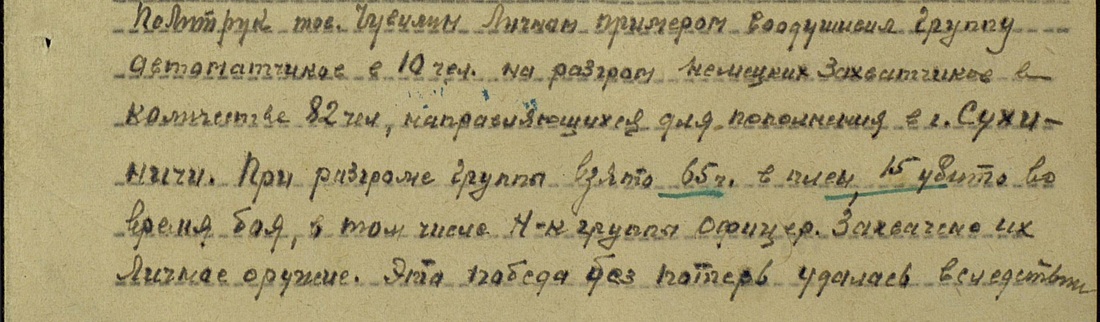 Политрук тов. Чувилин личным примером воодушевил группу
автоматчиков в 10 чел. на разгром немецких захватчиков в
количестве 82 чел, направляющихся для пополнения в г. Сухи-
ничи. При разгроме группы взято 65 ч. в плен, 15 убито во
время боя, в том числе Н-к группы офицер. Захвачено их
личное оружие. Эта победа без потерь удалась вследствии